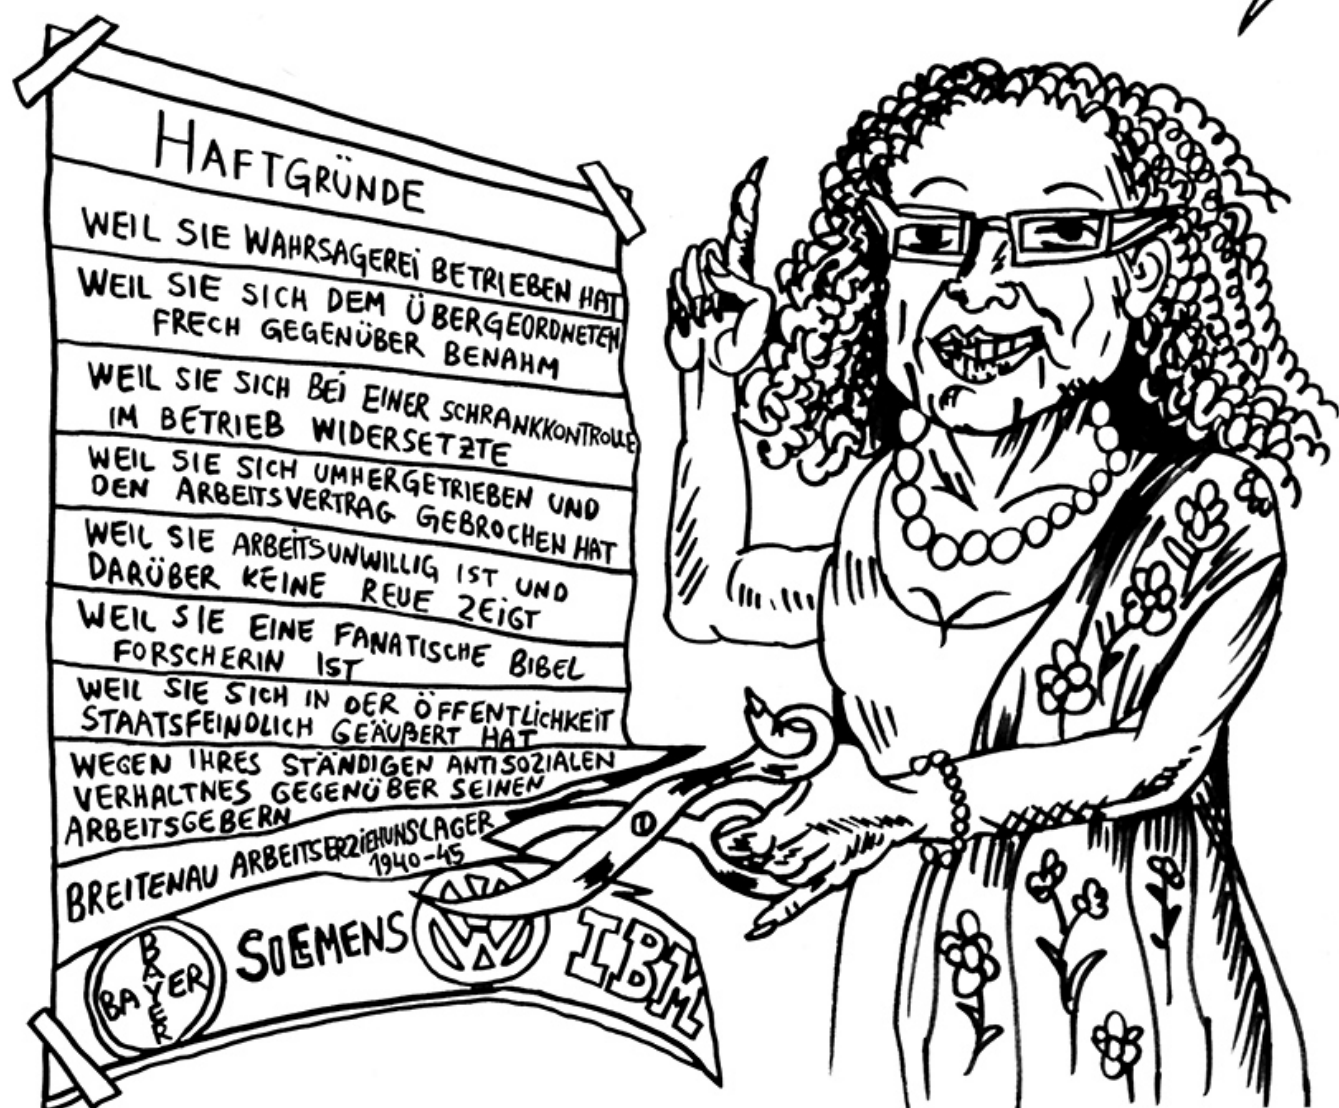 HAFTGRÜNDE
WEIL SIE WAHRSAGEREI BETRIEBEN HAT
WEIL SIE SICH DEM ÜBERGEORDNETEN
FRECH GEGENÜBER BENAHM
WEIL SIE SICH BEI EINER SCHRANKKONTROLLE
IM BETRIEB WIDERSETZTE
WEIL SIE SICH UMHERGETRIEBEN UND
DEN ARBEITSVERTRAG GEBROCHEN HAT
WEIL SIE ARBEITSUNWILLIG IST UND
DARÜBER KEINE REUE ZEIGT
WEIL SIE EINE FANATISCHE BIBEL
FORSCHERIN IST
WEIL SIE SICH IN DER ÖFFENTLICHKEIT
STAATSFEINDLICH GEÄUßERT HAT
WEGEN IHRES STÄNDIGEN ANTISOZIALEN
VERHALTNES GEGENÜBER SEINEN
ARBEITSGEBERN
BREITENAU ARBEITSERZIEHUNSLAGER
1940-45
BAYER
BAYER
SIEMENS
VW
IBM